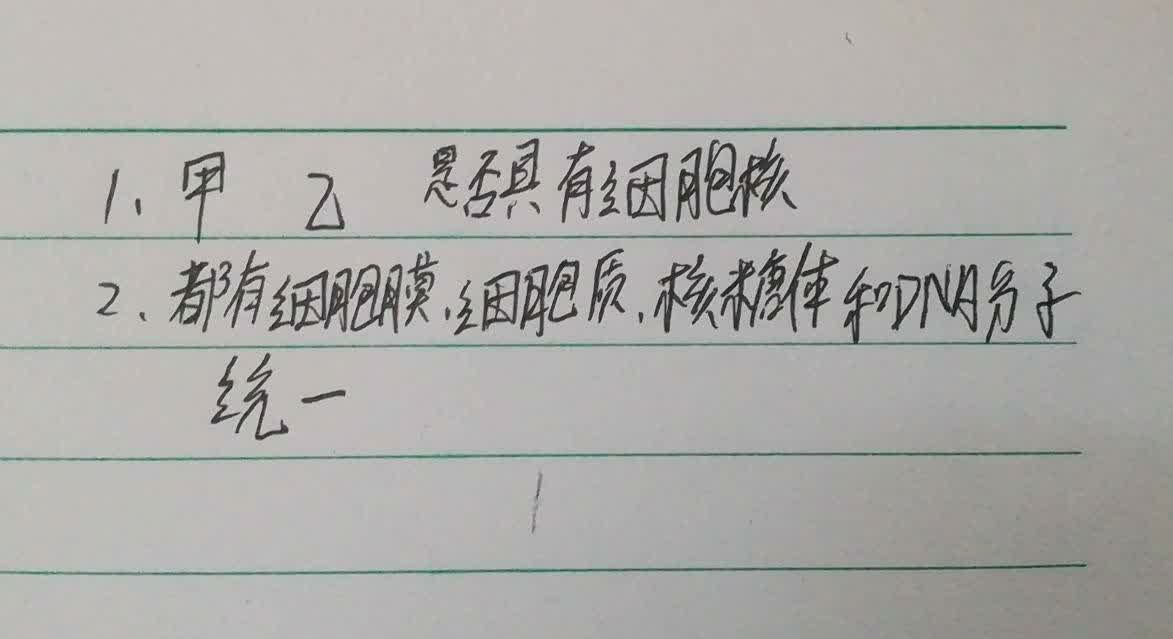 1、甲 乙 是否具有细胞核
2、都有细胞膜、细胞质、核糖体和DNA分子
统一